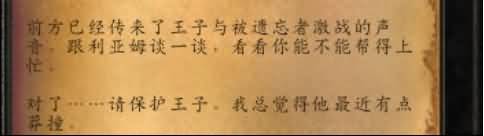 前方已经传来了王子与被遗忘者激战的声
音。跟利亚姆谈一谈，看看你能不能帮得上
忙。
对了……请保护王子。我总觉得他最近有点
莽撞。